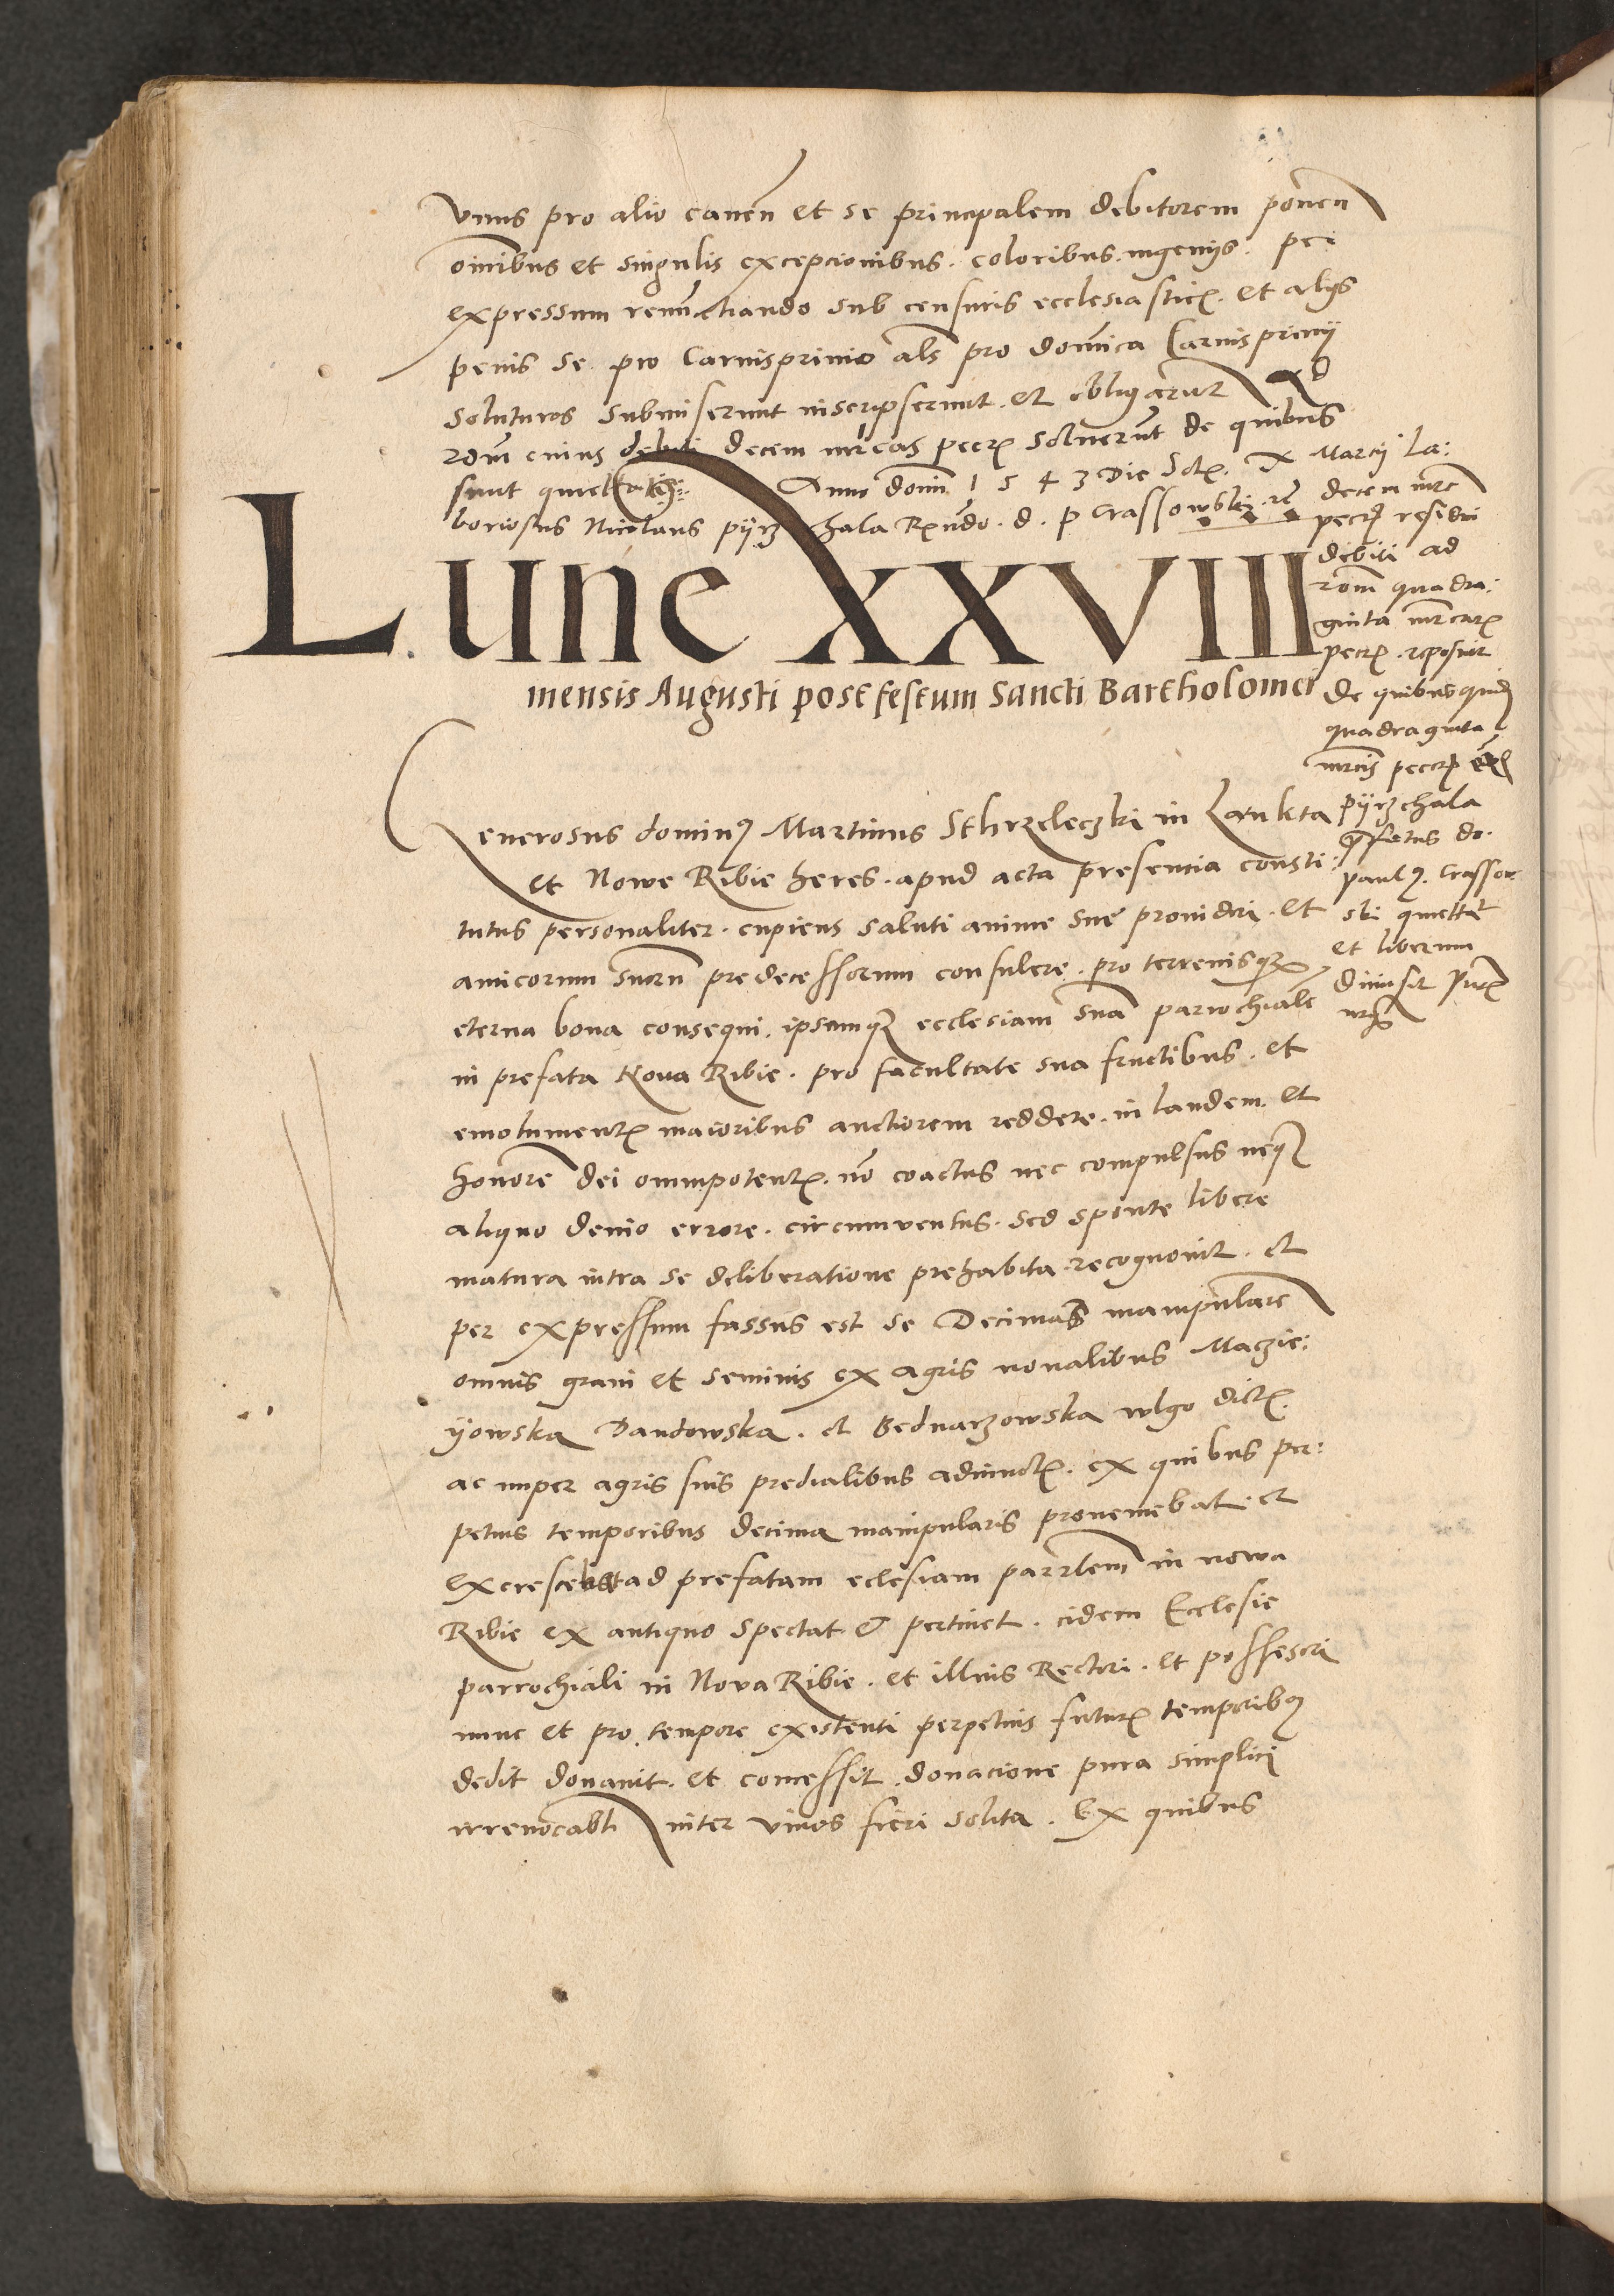 vnus pro alio cauen et se principalem debitorem ponen
omnibus et singulis excepcionibus . coloribus . ingenijs . per
expressum renunctiando sub censuris ecclesiastic . et alijs
penis se pro Carnisprinio als pro domica Carnispriuij
soluturos submiserunt inscripserunt . et obligarunt Ad
rom cuius debiti decem mrcas pecc soluerunt de quibus
sunt quiettati Anno domi 1 5 4 3 Die Sct X Marcij La:
boriosus Nicolaus pijrzchala Rendo . d . p Crassowski
decem mrc
pecc residui
debiti ad
rom quadra:
ginta mrcar
pecc . reposuit
De quibus quid
quadraginta
mrcis pecc
pijrzchala
prefatus do .
paulus . Crassow
ski quiettat
et liberum
dimisit
Lune XXVIII
mensis Augusti post festum Sancti Bartholomei
Generosus dominus Martinus Sthrzeleczki in Lankta
et Nowe Ribie heres . apud acta presencia consti:
tutus personaliter . cupiens saluti anime sue prouideri . et
amicorum suorum predecessorum consulere . pro terrenisque
eterna bona consequi . ipsamque ecclesiam sua parrochiale
in prefata Noua Ribie . pro facultate sua fructibus . et
emolument maioribus auctiorem reddere . in laudem . et
honore dei omnipotent . no coactus nec compulsus neque
aliquo deuio errore . circumuentus . sed sponte libere
matura intra se deliberatione prehabita . recognouit . et
per expressum fassus est se Decimas manipulare
omnis grani et seminis ex agris noualibus Maczie:
ijowska Dandowska . et Bednarzowska wlgo dict .
ac nuper agris suis predialibus adiunct . ex quibus per:
petuis temporibus decima manipularis proueniebat . et
excrescebat ad prefatam eclesiam parrlem in nowa
Ribie ex antiquo spectat & pertinet . eidem Ecclesie
parrochiali in Nova Ribie . et illius Rectori . et possessori
nunc et pro tempore existenti perpetuis futur temporibus
dedit donauit . et concessit . donacione pura simplici
irreuocabli inter viuos fieri solita . Ex quibus